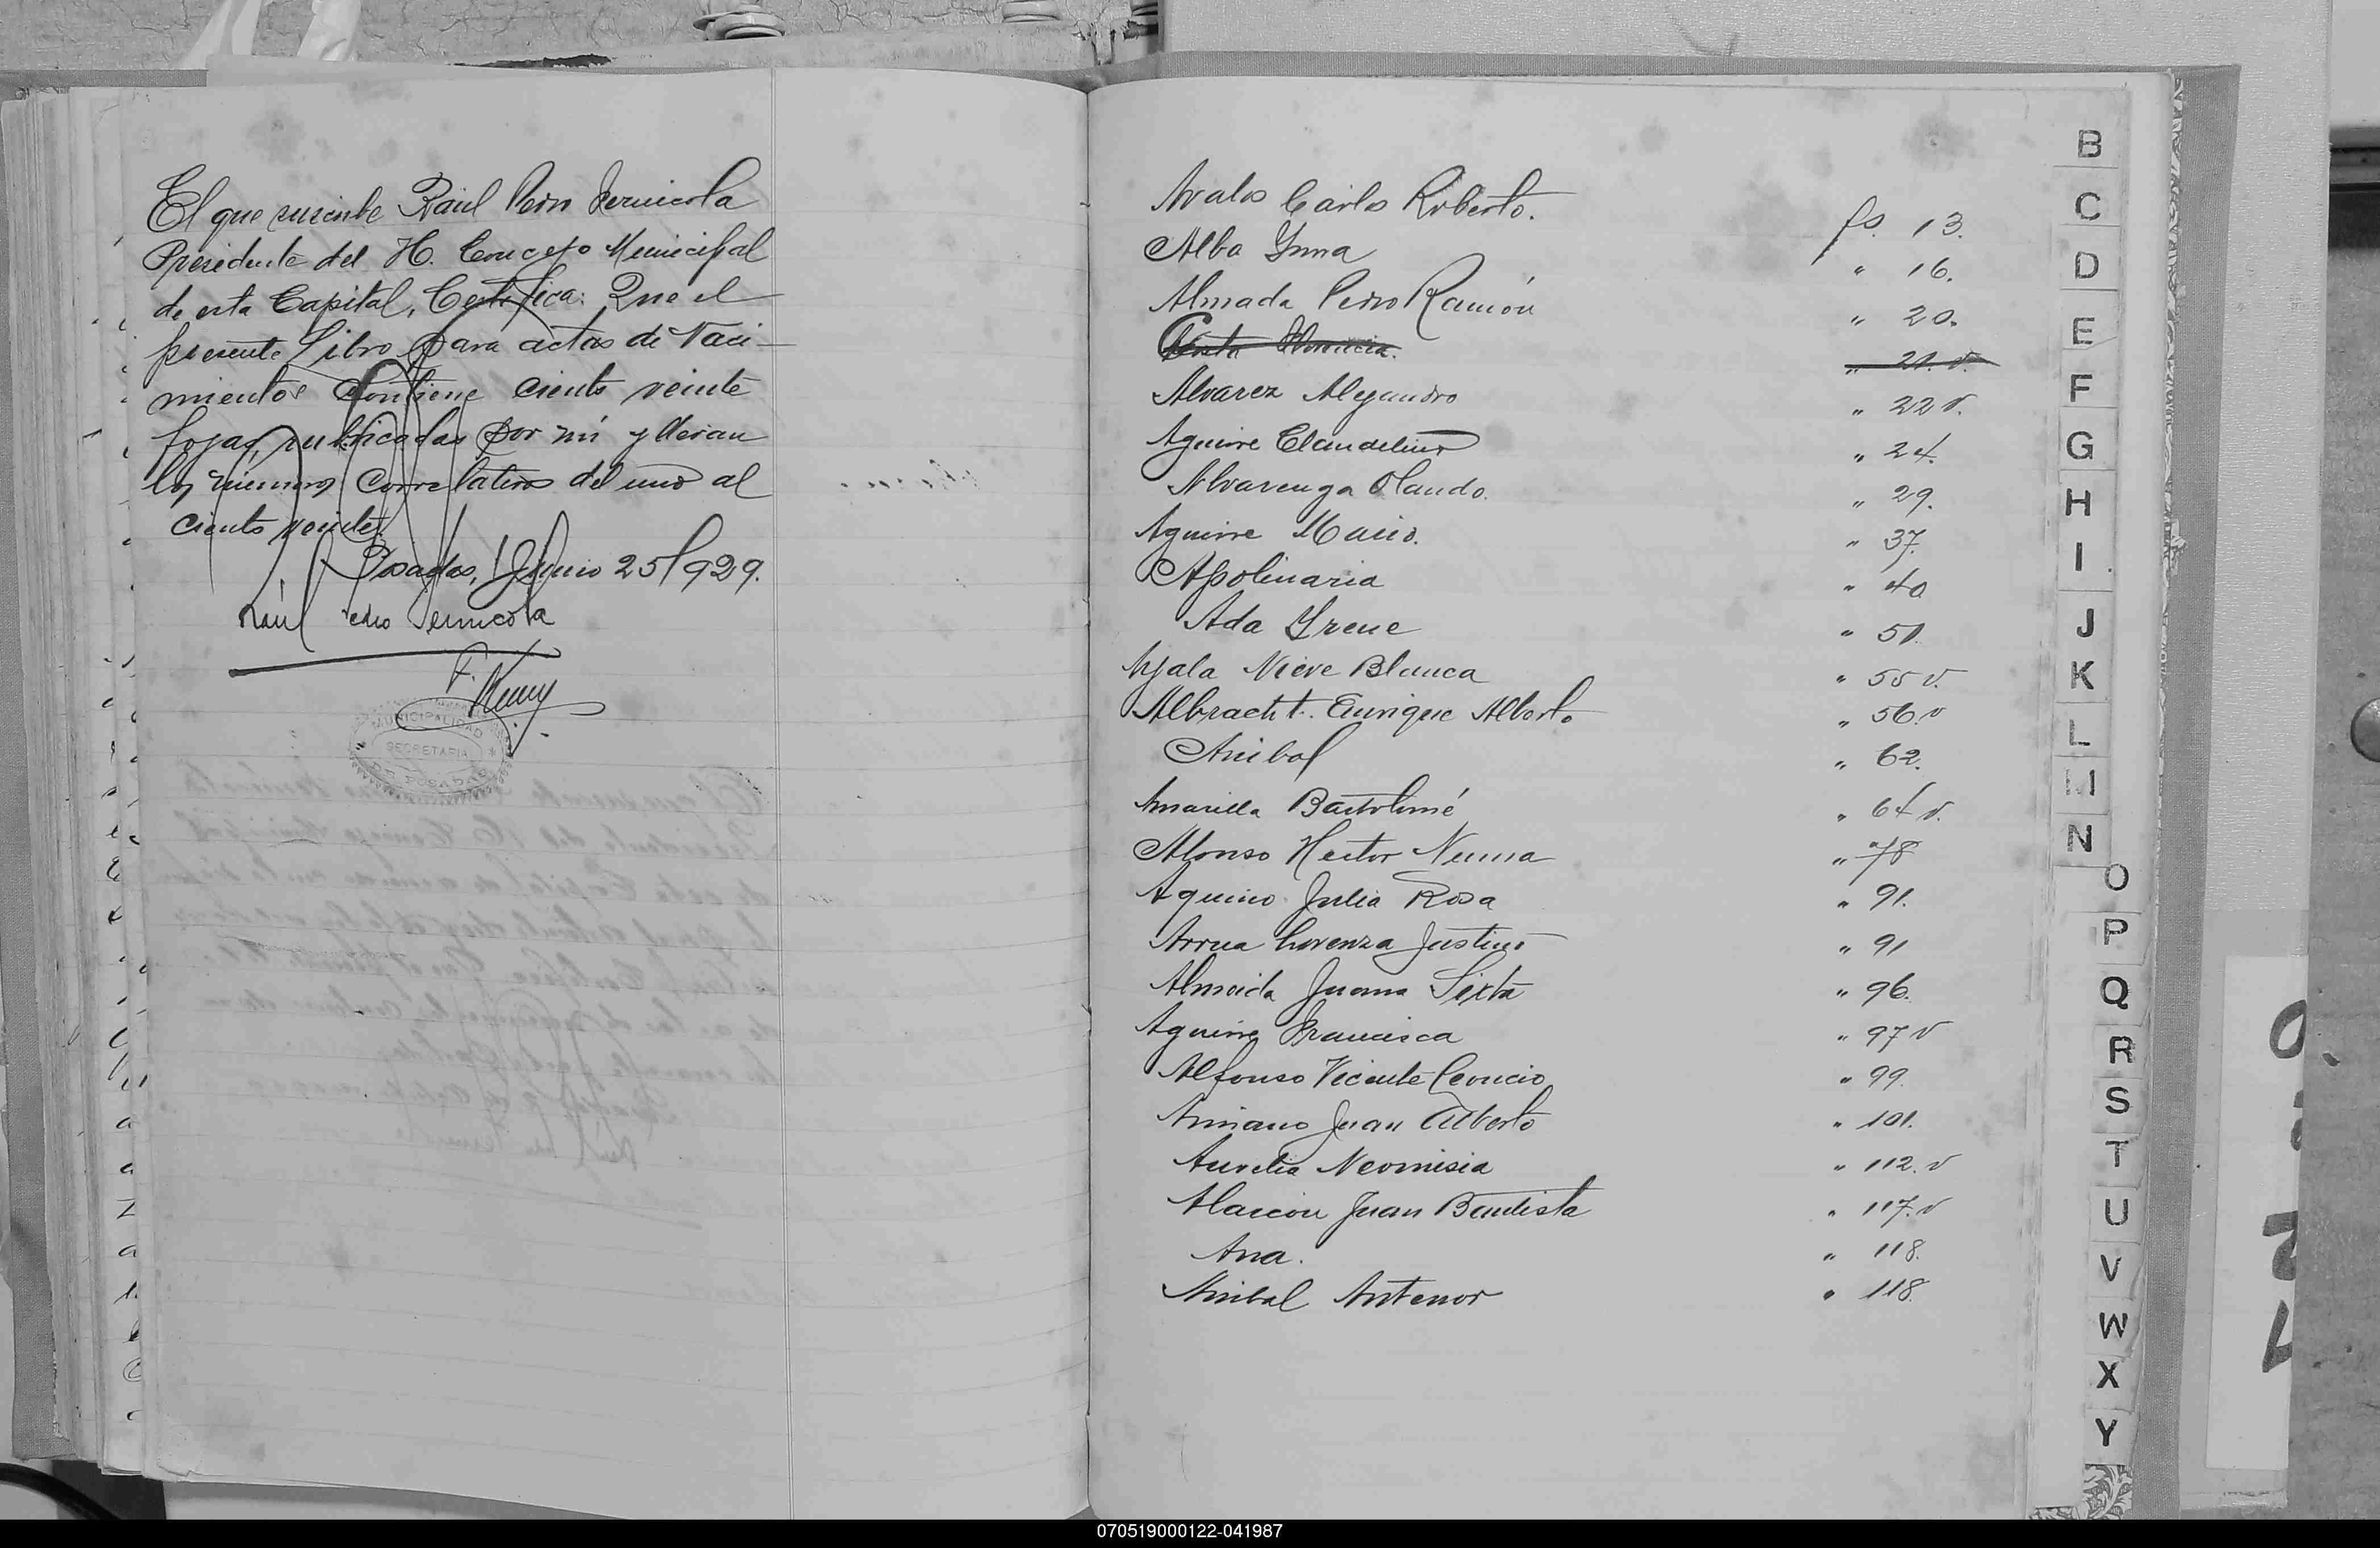 El que suscribe Raúl Pedro Pernicola
Presidente del H. Concejo Municipal
de esta Capital, Certifica: Que el
presente Libro para actas de Naci-
mientos contiene ciento veinte
fojas, rubricadas por mi y llevan
los números correlativos del uno al
ciento veinte.
Posadas, Junio 25/929.
Raúl Pedro Pernicola
MUNICIPALIDAD
SECRETARIA
DE POSADAS
Avalos Carlos Roberto. fs. 13.
Alba Ynna " 16.
Almada Pedro Ramón " 20.
Costa " 21. v.
Alvarez Alejandro " 22 v.
Aguirre Claudelino " 24.
Alvarenga Olando. " 29.
Aguirre Mario. " 37.
Apolinaria " 40
Ada Yrene " 51.
Ayala Nieve Blanca " 55 v.
Albracht. Enrique Alberto. " 56. v
Anibal " 62.
Amarilla Bartolomé " 64 v.
Alonso Hector Numa " 78
Aquino Julia Rosa " 91.
Arrua Lorenza Justino " 91
Almeida Juana Sixta " 96.
Aguirre Francisca " 97 v
Alfonso Vicente Leoncio " 99.
Juan Alberto " 101.
Aurelia Neomisia " 112. v
Alarcon Juan Bautista " 117. v
Ana. " 118.
Anibal Antenor " 118.
B
C
D
E
F
G
H
I
J
K
L
M
N
O
P
Q
R
S
T
U
V
W
X
Y
070519000122-041987